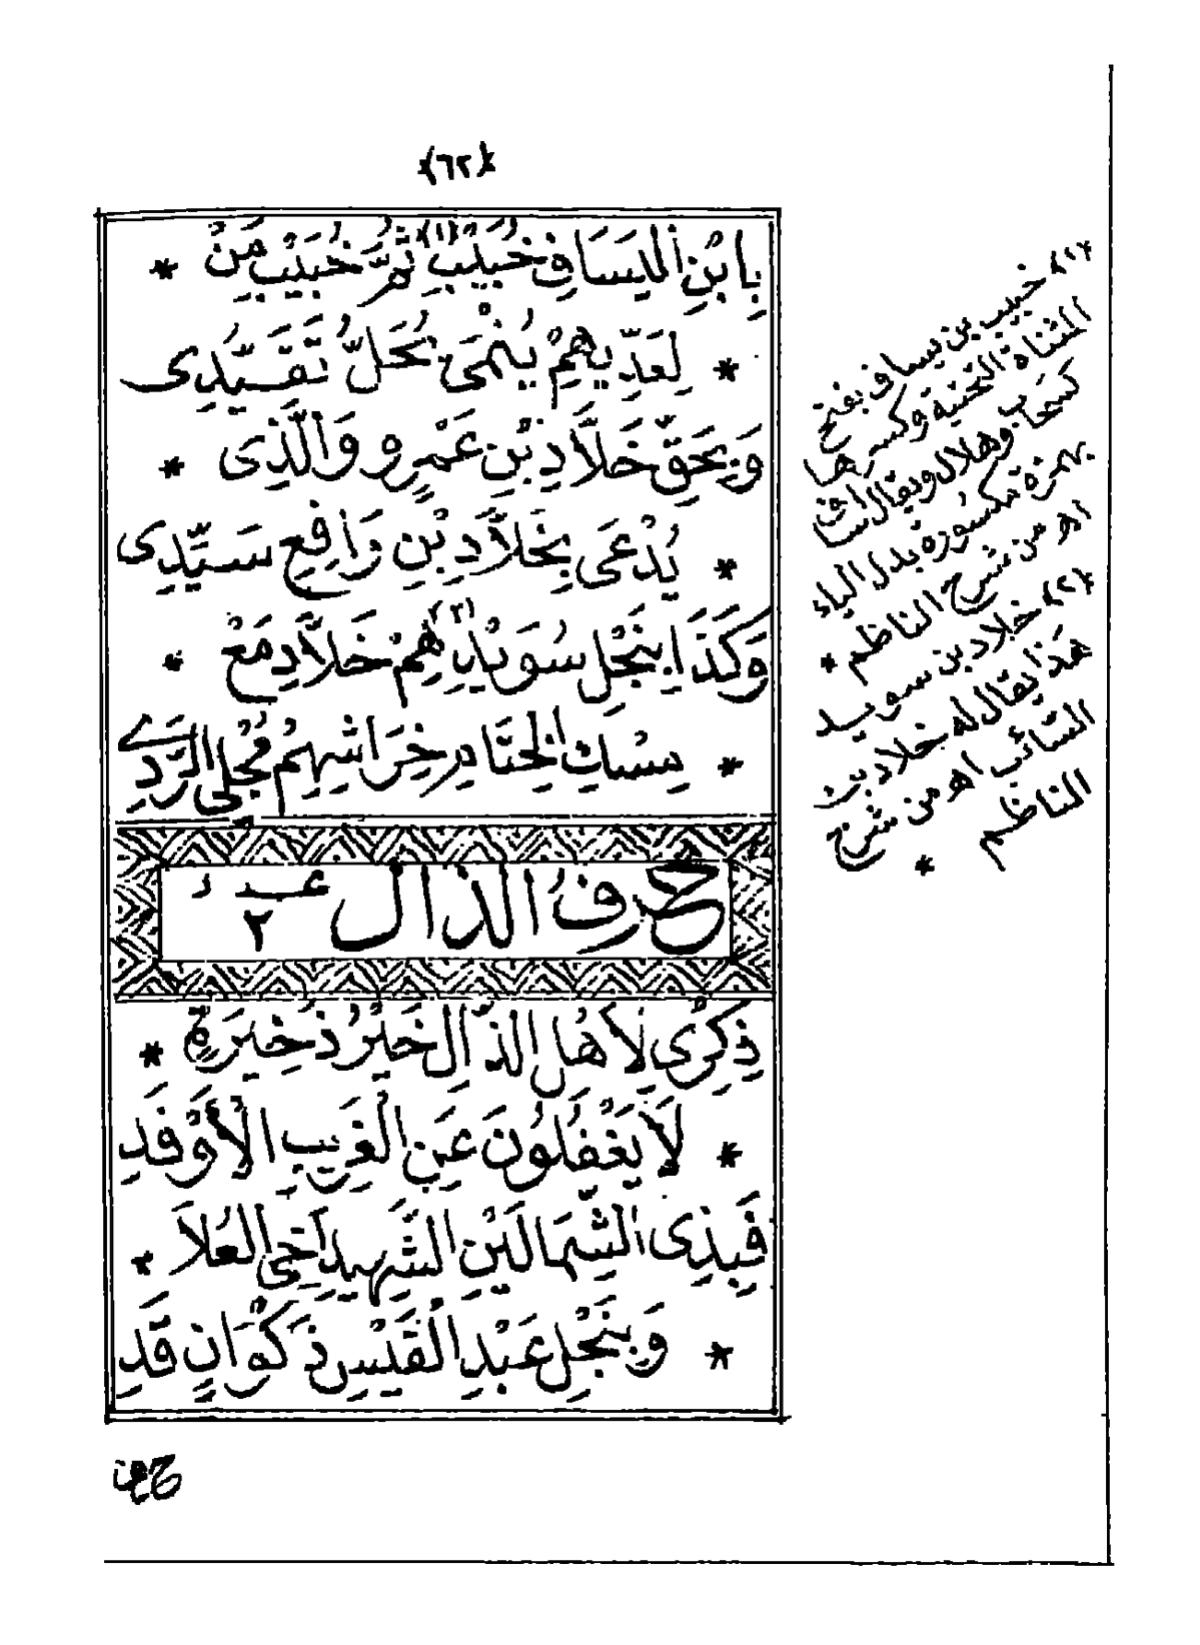 ﴿٦٢﴾
بِابْنِ الْيَسَافِ خُبَيْبٍ (١) ثُمَّ خُبَيْبِ مَنْ *
* لِعَدِّيهِمْ يُنْمَى بِحَلِّ تَقَيُّدِى
وَبِحَقِّ خَلاَّدِ بْنِ عَمْرٍو وَالَّذِى *
* يُدْعَى بِخَلاَّدِ بْنِ رَافِعِ سَيِّدِى
وَكَذَا بِنَجْلِ سُوَيْدِهِمْ (٢) خَلاَّدِ مَعْ *
* مِسْكِ الْخِتَامِ خِرَاشِهِمْ مُجْلِى الرَّدِى
حرف الذال عـــدد ٢
ذِكْرَى لِأَهْلِ الذَّالِ خَيْرُ ذَخِيرَةٍ *
* لاَ يَغْفُلُونَ عَنِ الْغَرِيبِ الْأَوْفَدِ
فَبِذِى الشِّمَالَيْنِ الشَّهِيدِ أَخِى الْعُلاَ *
* وَبِنَجْلِ عَبْدِ الْقَيْسِ ذَكْوَانٍ قَدِ
﴿١﴾ خبيب بن يساف بفتح
المثناة التحتية وكسرها
كسحاب وهلال ويقال اساف
بهمزة مكسورة بدل الياء
اهـ من شرح الناظم *
﴿٢﴾ خلاد بن سويد
هذا يقال له خلاد بن
السائب اهـ من شرح
الناظم *